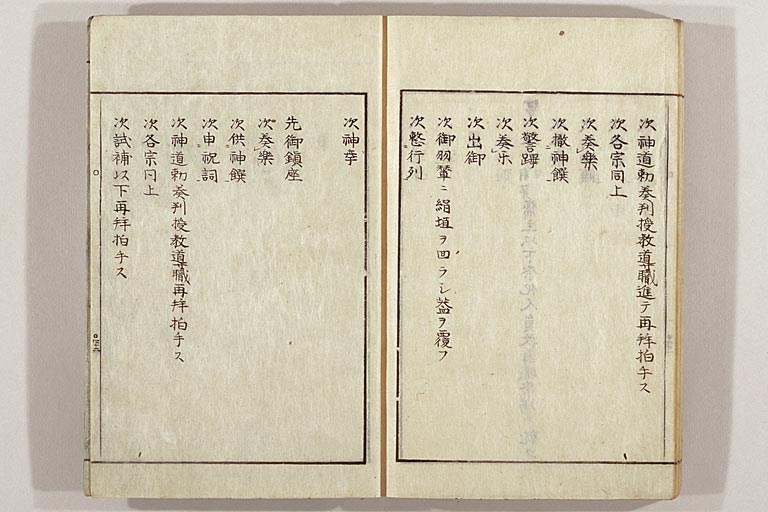 次神道勅奏判授教導職進テ再拜拍手ス
次各宗同上
次奏樂
次撤神饌
次警蹕
次奏乐
次出御
次御羽輦ニ絹垣ヲ四ラシ蓋ヲ覆フ
次整行列
次神幸
先御鎮座
次奏樂
次供神饌
次申祝詞
次神道勅奏判授教導職再拜拍手ス
次各宗同上
次試補以下再拜拍手ス